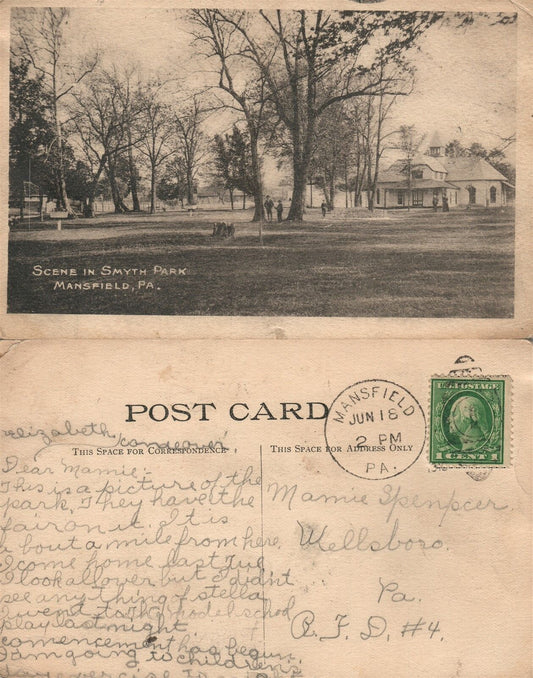 SCENE IN SMYTH PARK
MANSFIELD, PA.
POST CARD
THIS SPACE FOR CORRESPONDENCE
THIS SPACE FOR ADDRESS ONLY
MANSFIELD
JUN 18
2 PM
PA.
U.S. POSTAGE
1 CENT 1
Elizabeth
Dear Mamie:-
This is a picture of the
park, They have the
fair on it. It is
a bout a mile from here.
I come home last Tue
I look all over but I didn't
see any thing of stella
I went to the model school
play last night
commencement has begun.
I am going to children's
Mamie Spenpcer.
Wellsboro.
Pa.
R. F. D. #4.